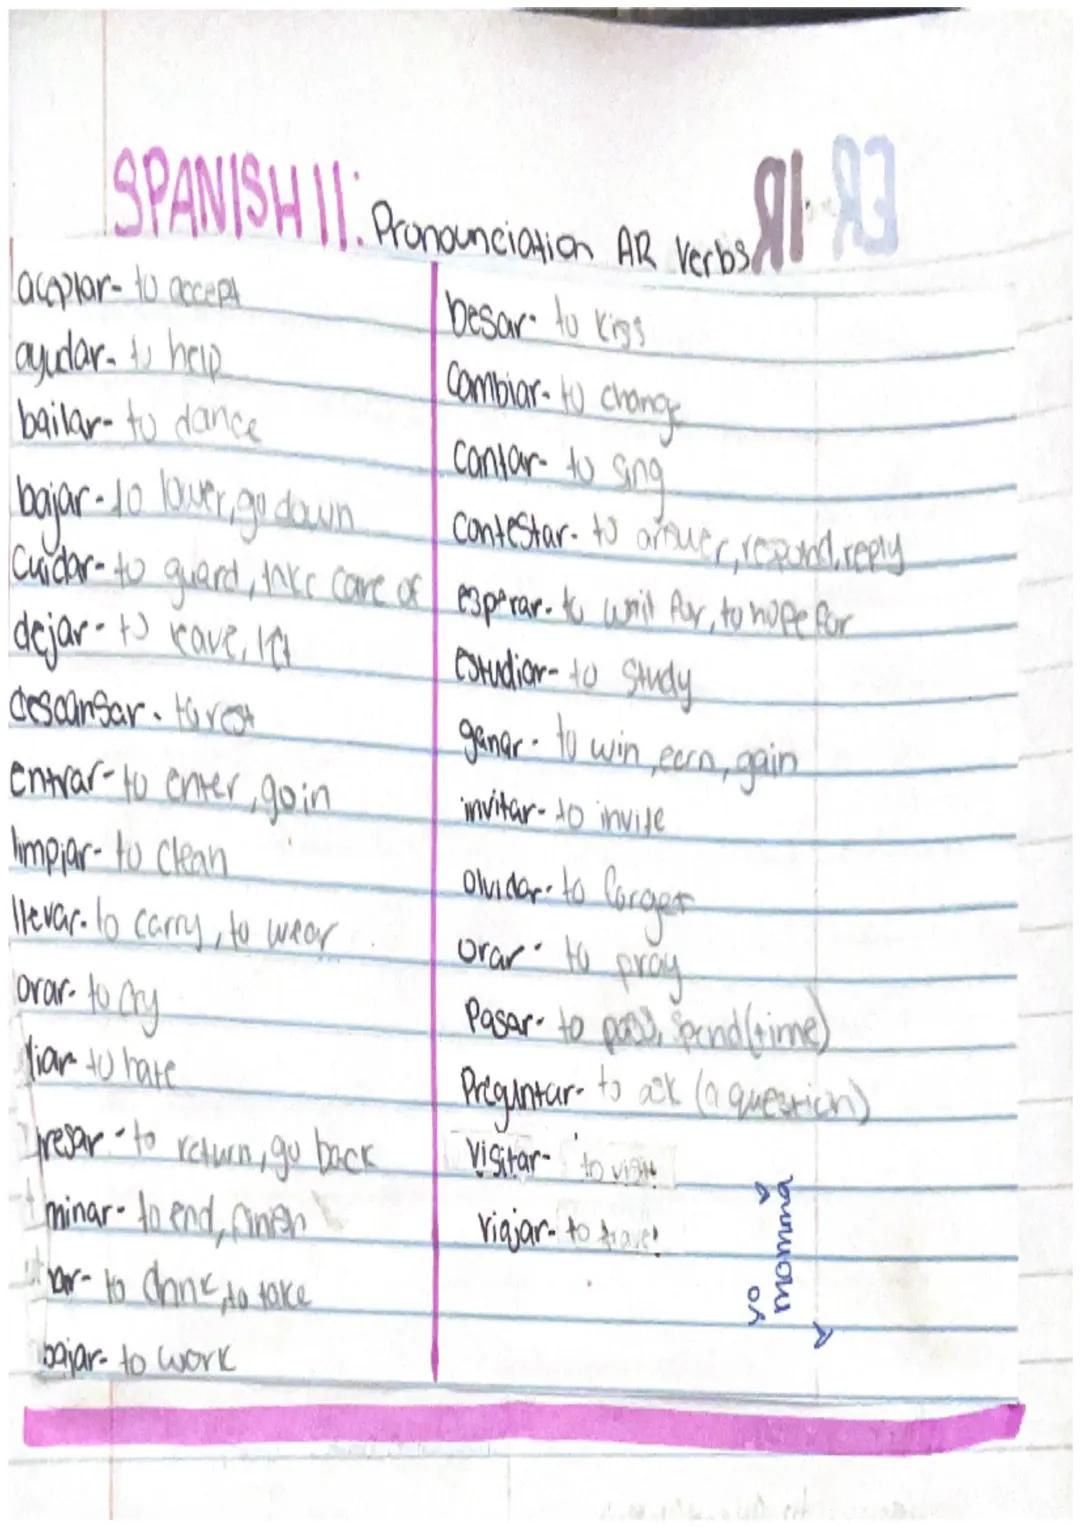 SPANISH II: Pronounciation AR Verbs IR ER
aceptar- to accept
ayudar- to help
bailar- to dance
bajar- to lower, go down
Cuidar- to guard, take care of
dejar- to leave, let
descansar- to rest
entrar- to enter, go in
limpiar- to clean
llevar- to carry, to wear
orar- to cry
diar- to hate
resar- to return, go back
minar- to end, finish
ar- to drink, to take
bajar- to work
besar- to kiss
Cambiar- to change
Cantar- to sing
Contestar- to answer, respond, reply
esperar- to wait for, to hope for
Estudiar- to study
ganar- to win, earn, gain
invitar- to invite
Olvidar- to forget
orar- to pray
Pasar- to pass, spend (time)
Preguntar- to ask (a question)
Visitar- to visit
Viajar- to travel
yo
momma